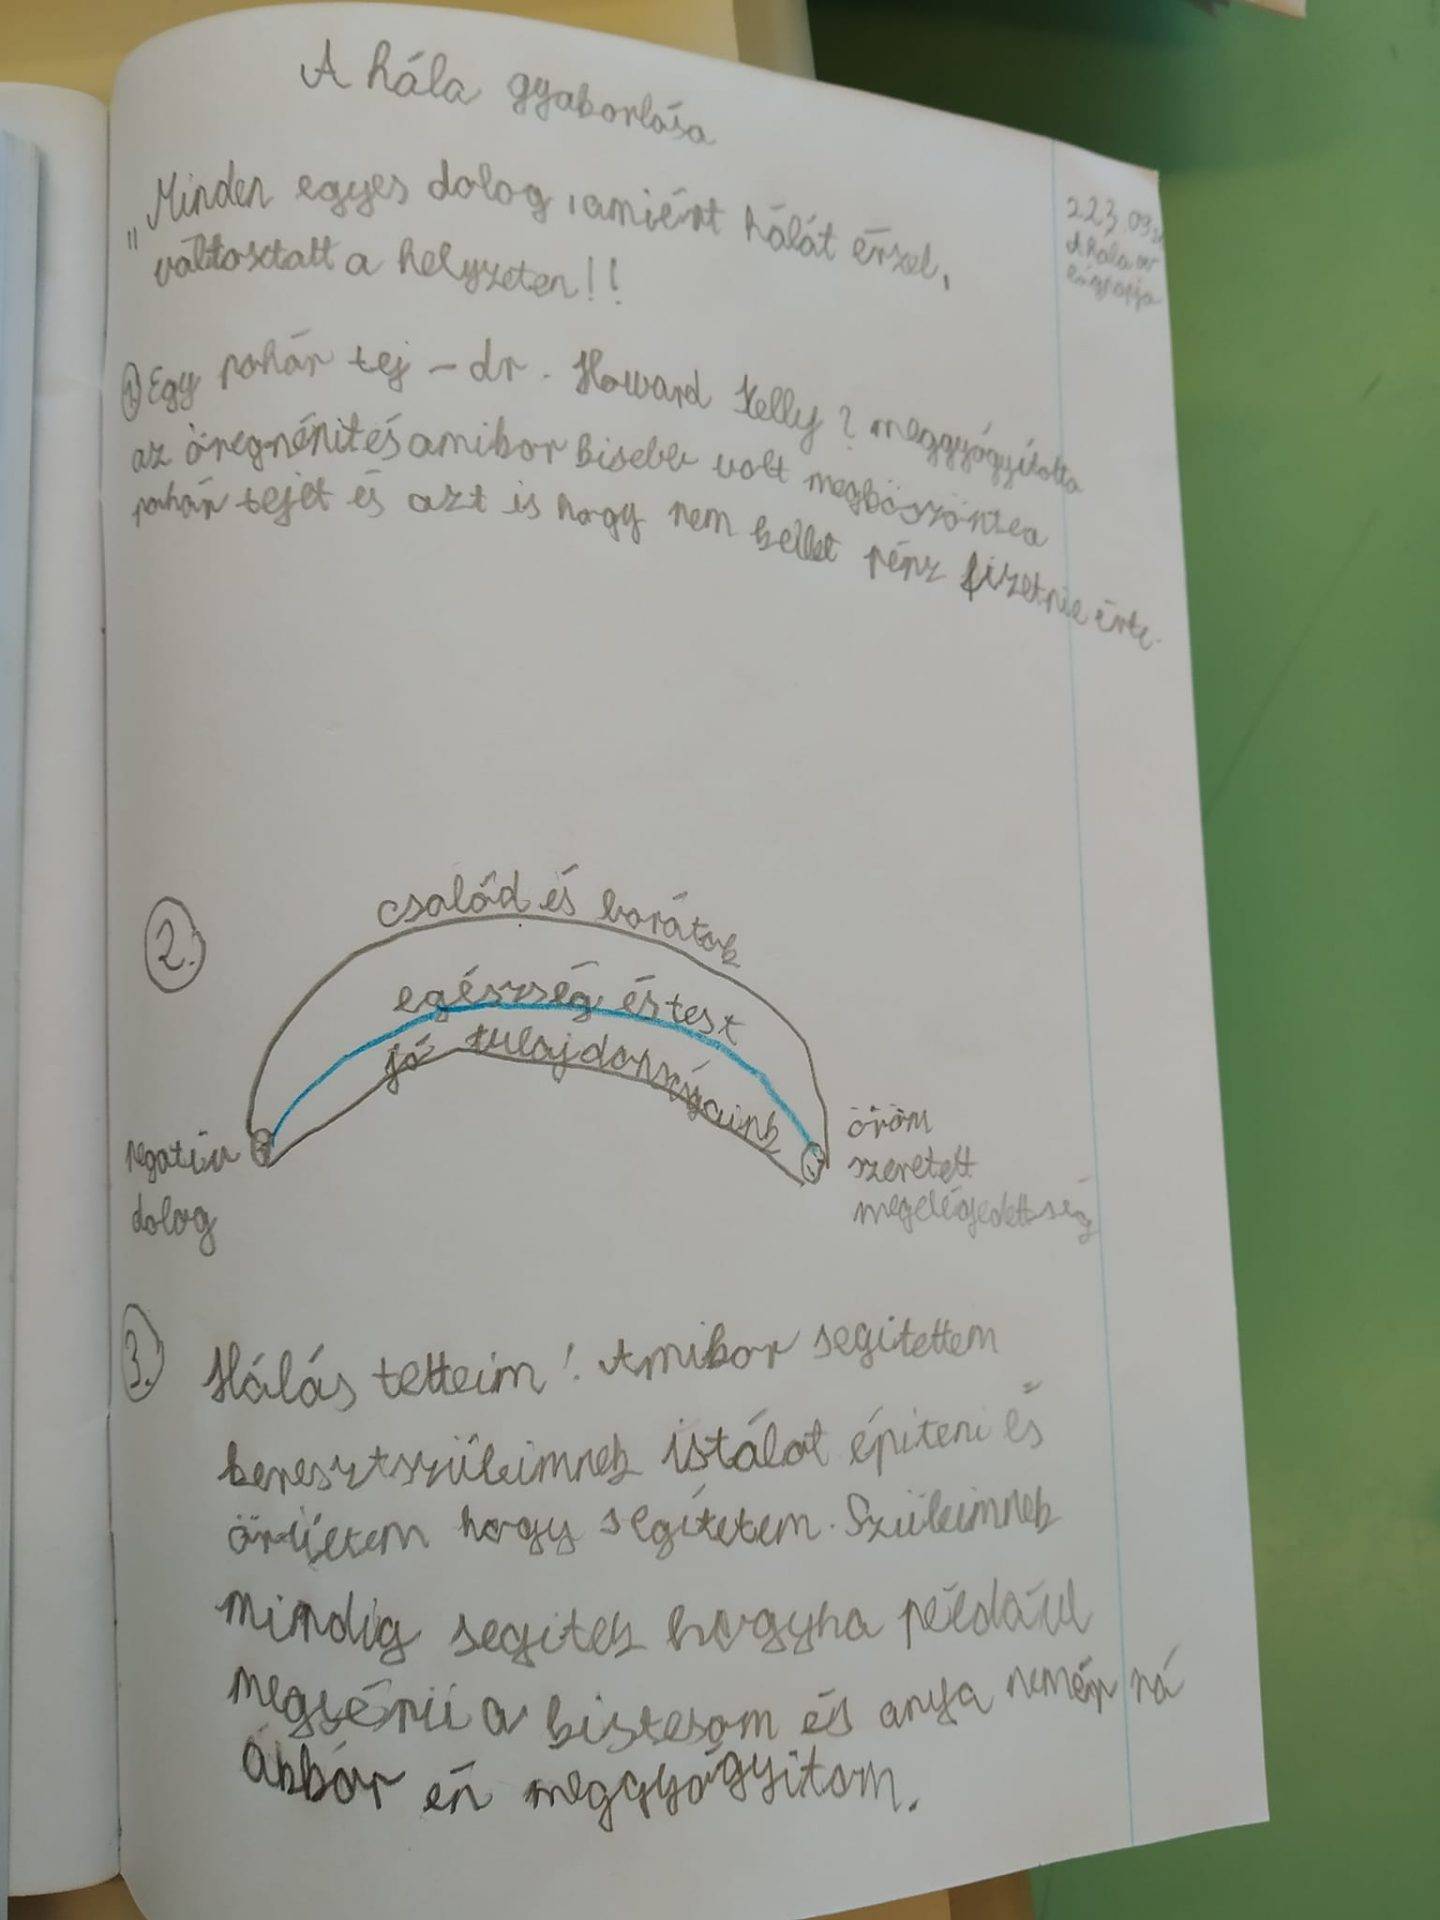 A hála gyakorlása
„Minden egyes dolog, amiért hálát érzel,
változtatt a helyzeten!!
223.09.
A hála
① Egy pohár tej – dr. Howard Kelly? meggyógyította
az öregnénit és amikor kisebb volt megköszönte a
pohár tejet és azt is hogy nem kellet pénz fizetnie érte.
2.
család és barátok
egészség és test
jó tulajdonságaink
negatív
dolog
öröm
szeretett
megelégedettség
3. Hálás tetteim! Amikor segitettem
keresztszüleimnek istálot épiteni és
örűltem hogy segítetem. Szüleimnek
mindig segitek hogyha például
megsérűl a kistesom és anya nemér rá
ákkor én meggyógyitom.